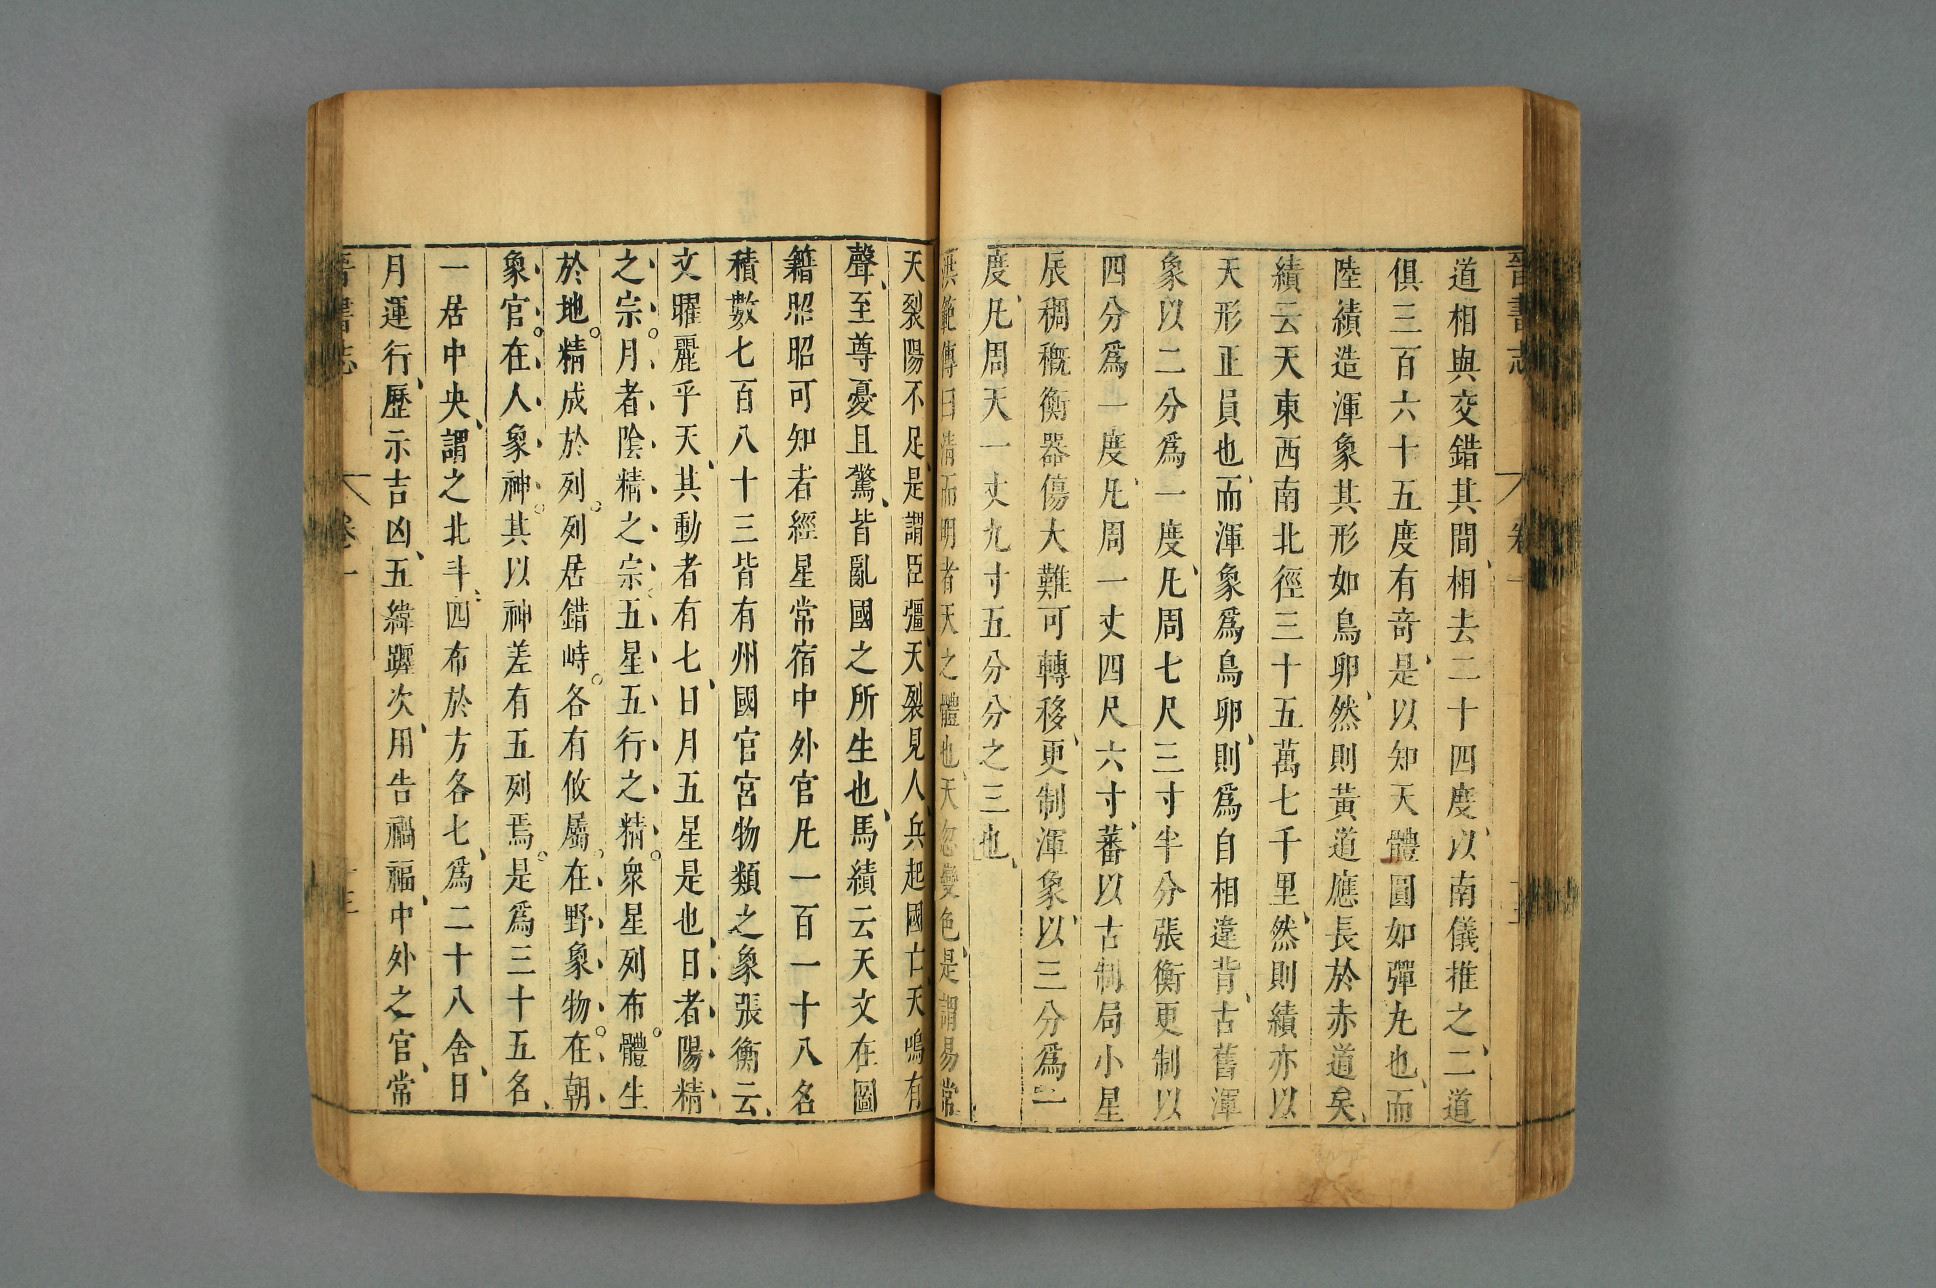 晉書志 卷一
道相與交錯其間相去二十四度以南儀推之二道
俱三百六十五度有奇是以知天體圓如彈丸也而
陸績造渾象其形如鳥卵然則黃道應長於赤道矣
績云天東西南北徑三十五萬七千里然則績亦以
天形正員也而渾象爲鳥卵則爲自相違背古舊渾
象以二分爲一度凡周七尺三寸半分張衡更制以
四分爲一度凡周一丈四尺六寸蕃以古制局小星
辰稠穊衡器傷大難可轉移更制渾象以三分爲一
度凡周天一丈九寸五分分之三也
洪範傳曰清而明者天之體也天忽變色是謂易常
天裂陽不足是謂臣彊天裂見人兵起國亡天鳴有
聲至尊憂且驚皆亂國之所生也馬績云天文在圖
籍昭昭可知者經星常宿中外官凡一百一十八名
積數七百八十三皆有州國官宮物類之象張衡云
文曜麗乎天其動者有七日月五星是也日者陽精
之宗月者陰精之宗五星五行之精衆星列布體生
於地精成於列列居錯峙各有攸屬在野象物在朝
象官在人象神其以神差有五列焉是爲三十五名
一居中央謂之北斗四布於方各七爲二十八舍日
月運行歷示吉凶五緯躔次用告禍福中外之官常
晉書志 卷一